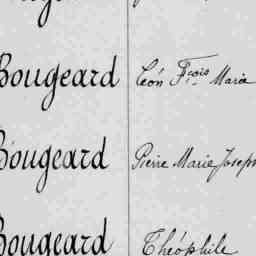 Bougeard Léon Fçois Marie
Bougeard Pierre Marie Joseph
Bougeard Théophile